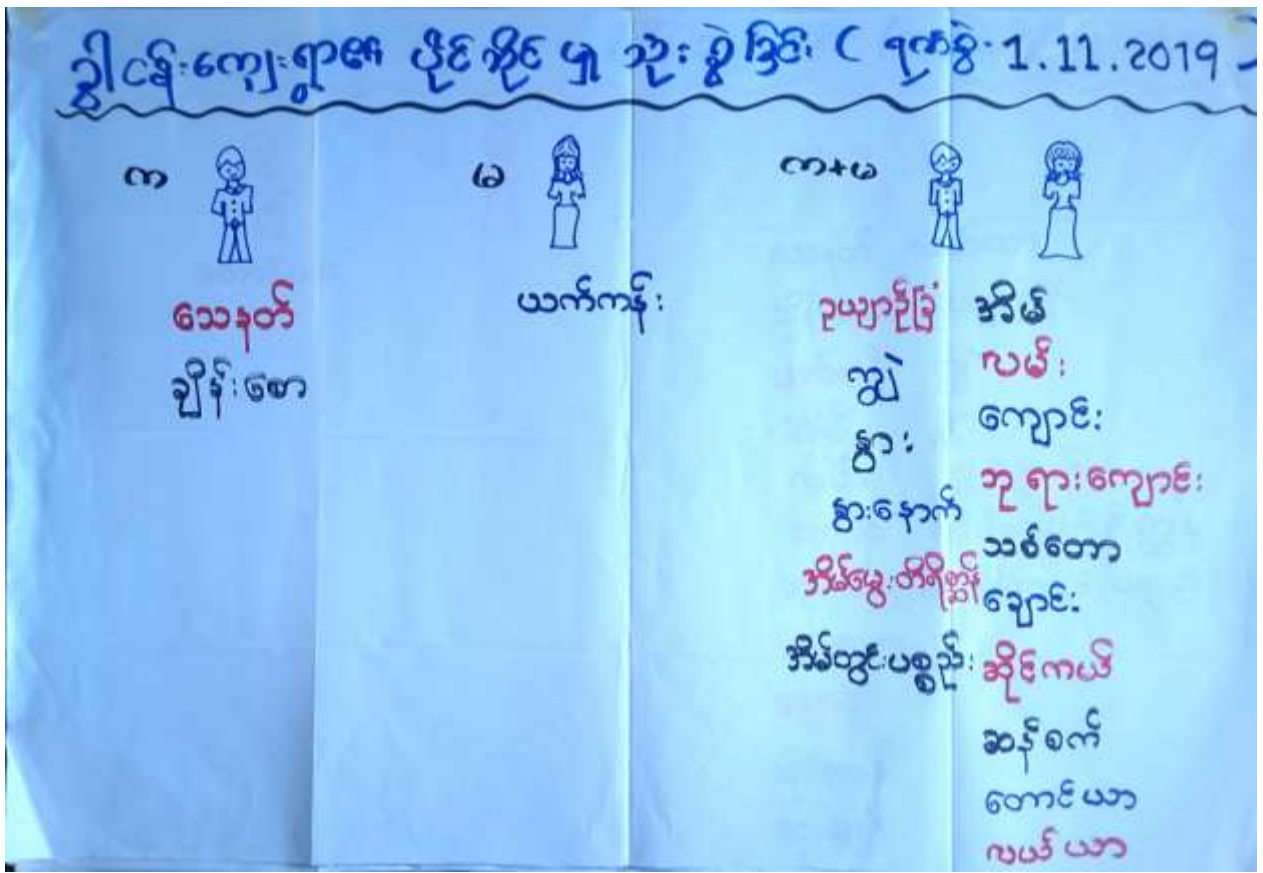 ဥွါငန်းကျေးရွာ၏ ပိုင်ဆိုင်မှု သုံးစွဲခြင်း ( ရက်စွဲ. 1.11.2019
က
မ
က+မ
သေနတ်
ချိန်းစော
ယက်ကန်း
ဥယျာဉ်ခြံ
ကျွဲ
နွား
နွားနောက်
အိမ်မွေးတိရိစ္ဆာန်
အိမ်တွင်းပစ္စည်း
အိမ်
လမ်း
ကျောင်း
ဘုရားကျောင်း
သစ်တော
ချောင်း
ဆိုင်ကယ်
ဆန်စက်
တောင်ယာ
လယ်ယာ